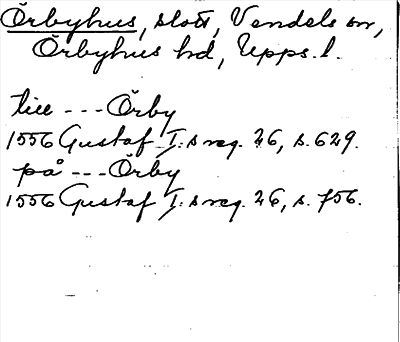 Örbyhus, slott, Vendels sn,
Örbyhus hd, Upps. l.
till --- Örby
1556 Gustaf I:s reg. 26, s. 629.
på --- Örby
1556 Gustaf I:s reg. 26, s. 756.